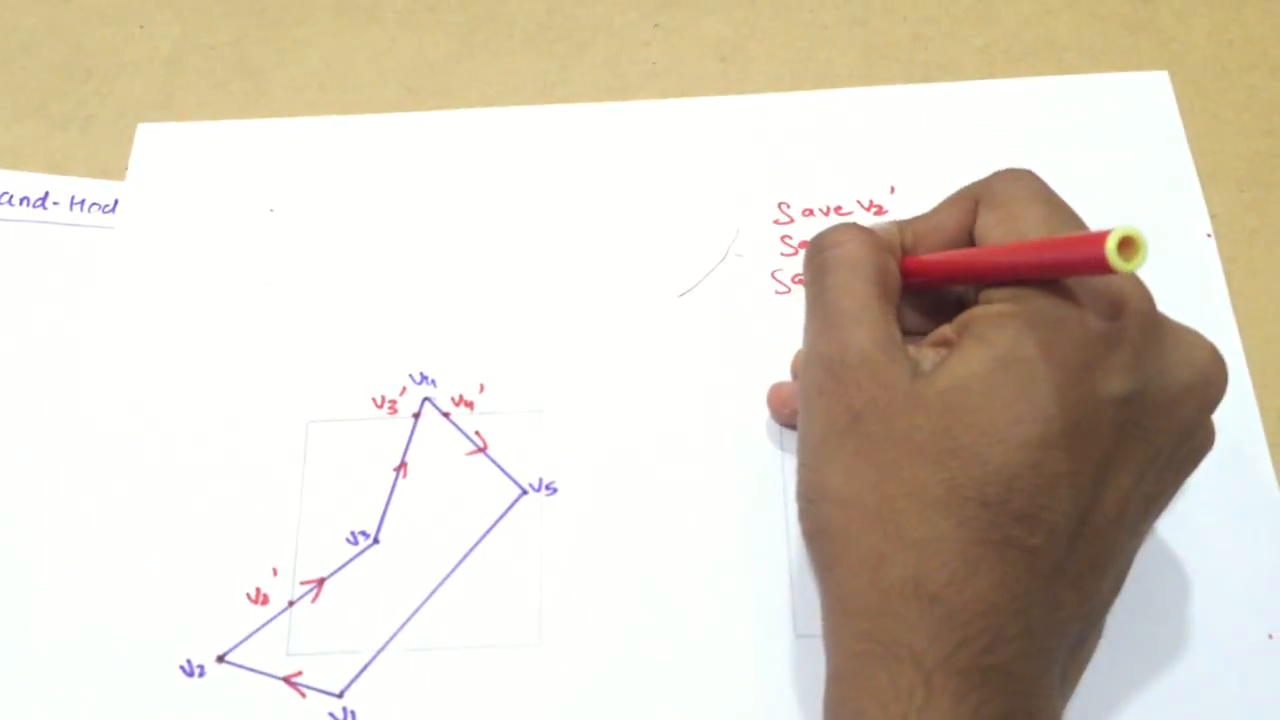 and-Hod
Save V2'
V4
V3'
V4'
V5
V3
V2'
V2
V1